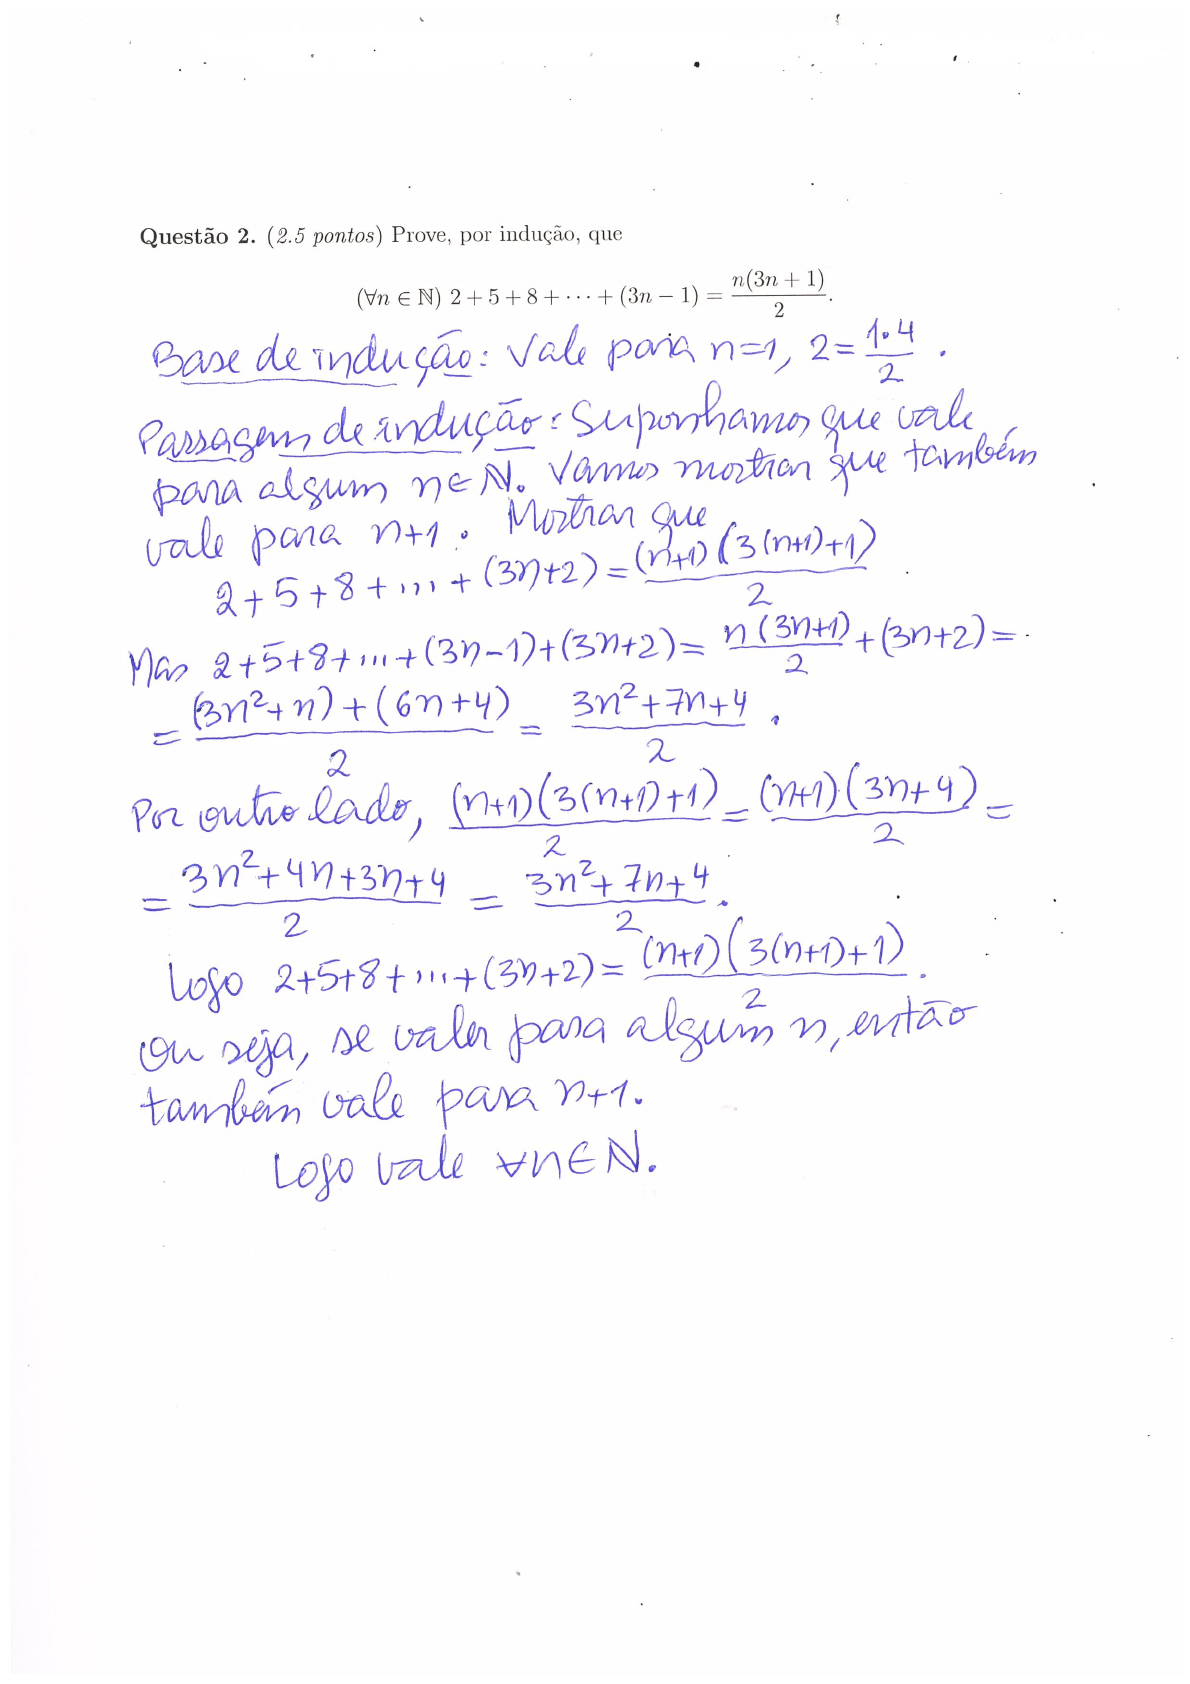 Questão 2. (2.5 pontos) Prove, por indução, que
(∀n ∈ ℕ) 2 + 5 + 8 + ··· + (3n − 1) = n(3n + 1)/2.
Base de indução: Vale para n=1, 2 = 1·4/2.
Passagem de indução: Suponhamos que vale
para algum n∈ℕ. Vamos mostrar que também
vale para n+1. Mostrar que
2+5+8+...+(3n+2) = (n+1)(3(n+1)+1)/2
Mas 2+5+8+...+(3n-1)+(3n+2) = n(3n+1)/2 + (3n+2) =
= (3n²+n)+(6n+4)/2 = 3n²+7n+4/2.
Por outro lado, (n+1)(3(n+1)+1)/2 = (n+1)(3n+4)/2 =
= 3n²+4n+3n+4/2 = 3n²+7n+4/2.
Logo 2+5+8+...+(3n+2) = (n+1)(3(n+1)+1)/2.
Ou seja, se valer para algum n, então
também vale para n+1.
Logo vale ∀n∈ℕ.